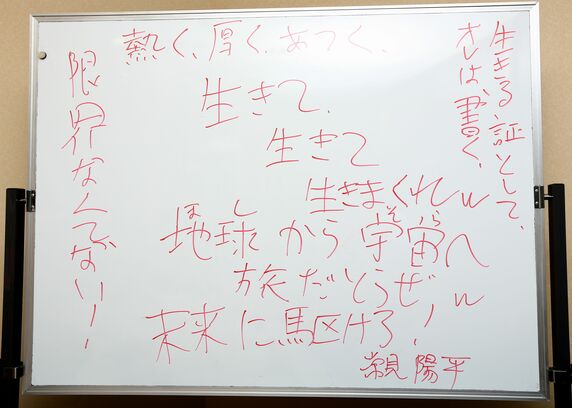 生きる証として、
オレは、書く、
熱く、厚く、あつく、
生きて、
生きて
生きまくれw
ほし そら
地球から宇宙へ
旅だとうぜw
未来に駆けろ!
常見 陽平
限界なんでない!